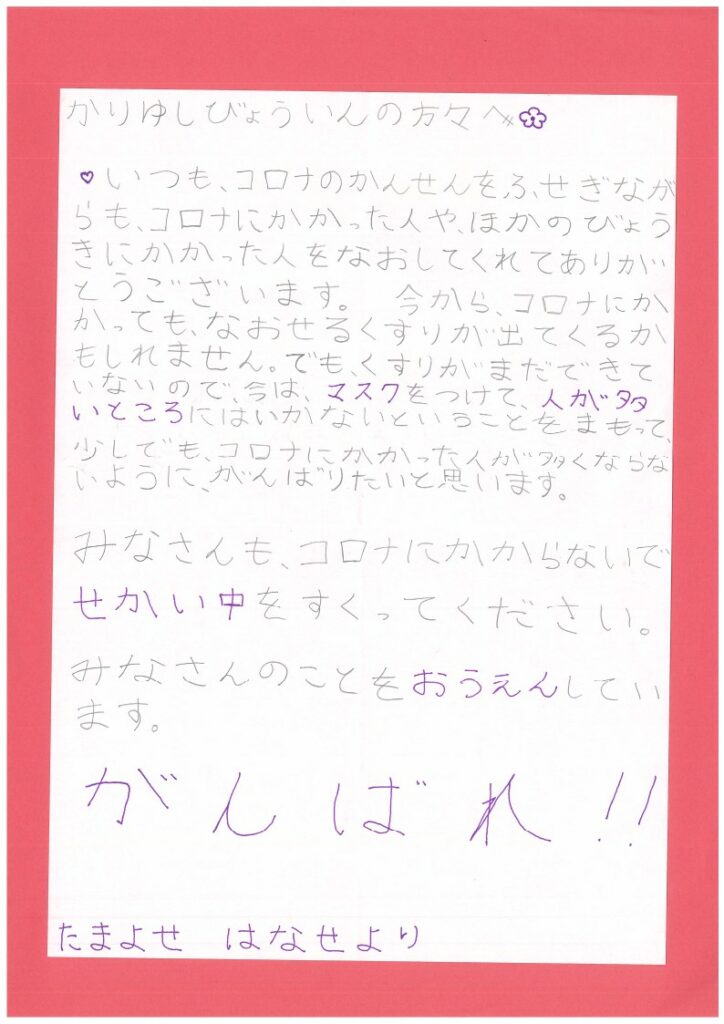 かりゆしびょういんの方々へ
いつも、コロナのかんせんをふせぎなが
らも、コロナにかかった人や、ほかのびょう
きにかかった人をなおしてくれてありが
とうございます。 今から、コロナにか
かっても、なおせるくすりが出てくるか
もしれません。でも、くすりがまだできて
いないので、今は、マスクをつけて、人が多
いところにはいかないということをまもって、
少しでも、コロナにかかった人が多くならな
いように、がんばりたいと思います。
みなさんも、コロナにかからないで
せかい中をすくってください。
みなさんのことをおうえんしてい
ます。
がんばれ!!
たまよせ はなせより